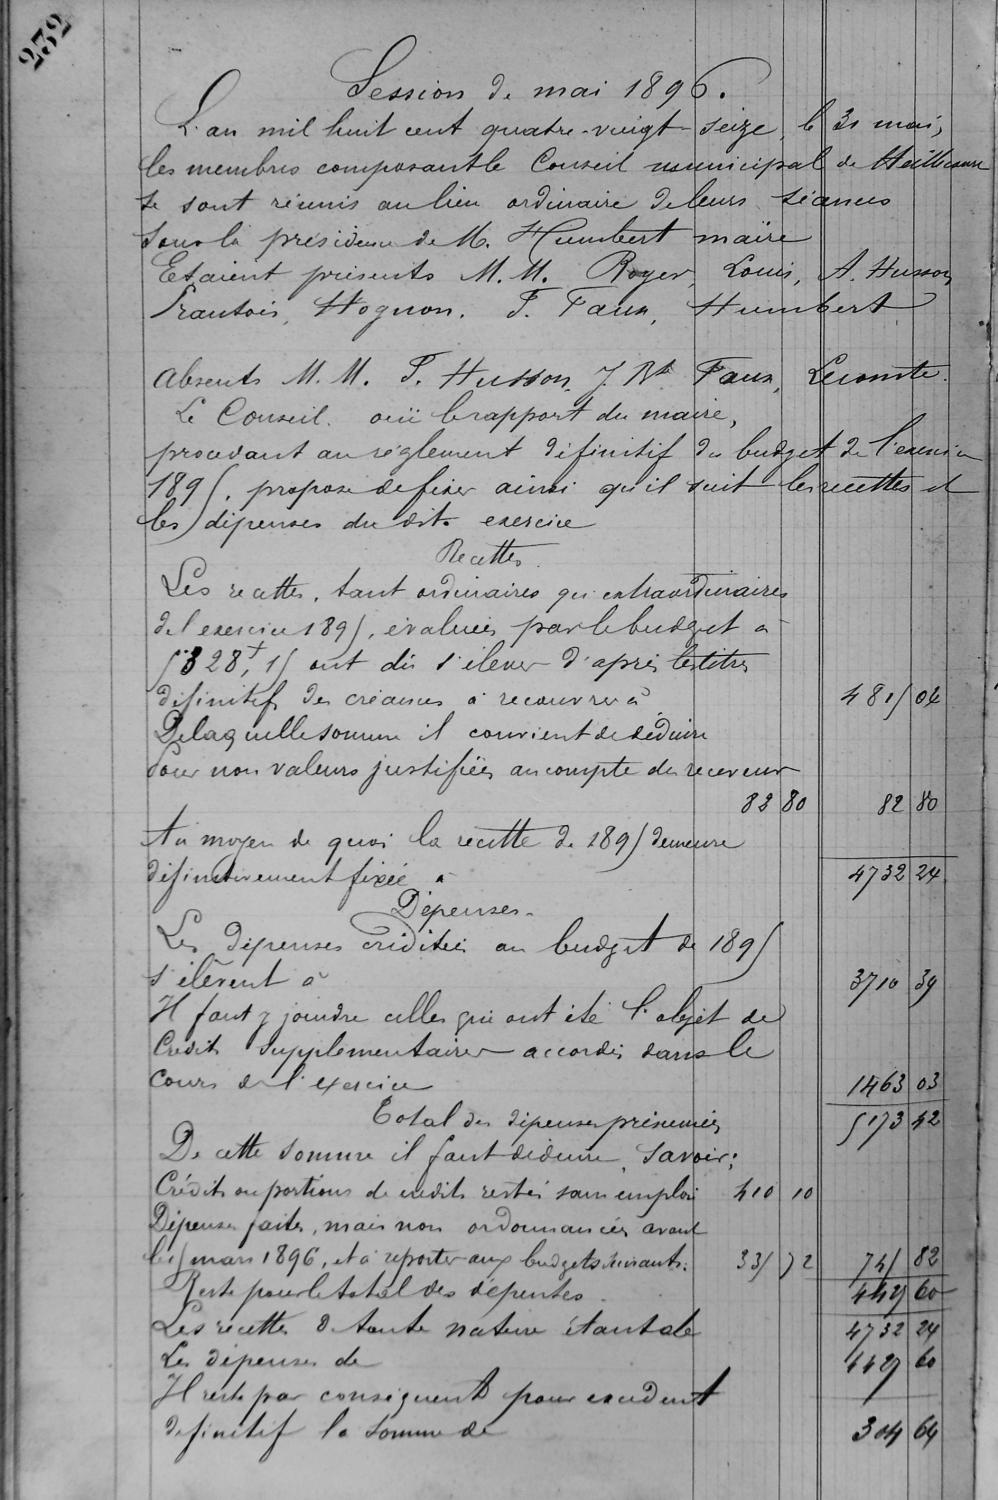 232
Session de mai 1896.
L'an mil huit cent quatre-vingt-seize, le 31 mai,
les membres composant le Conseil municipal de
se sont réunis au lieu ordinaire de leurs séances
sous la présidence de M. Humbert maire
Etaient présents M.M. Royer, Louis, A. Husson,
François, Hognon, F. Faux, Humbert
Absents M.M. F. Husson, J. Bte Faux, Lecomte.
Le Conseil. ouï le rapport du maire,
procédant au règlement définitif du budget de l'exercice
1895, propose de fixer ainsi qu'il suit les recettes et
les dépenses du dit exercice
Recettes.
Les recettes, tant ordinaires qu'extraordinaires
de l'exercice 1895, évaluées par le budget à
5328f,15 ont dû s'élever d'après les titres
définitifs des créances à recouvrer à 4815 04
De laquelle somme il convient de déduire
Pour non valeurs justifiées au compte du receveur
82 80 82 80
Au moyen de quoi la recette de 1895 demeure
définitivement fixée à 4732 24
Dépenses.
Les dépenses créditées au budget de 1895
s'élèvent à 3710 39
Il faut y joindre celles qui ont été l'objet de
Crédits supplémentaires accordés dans le
Cours de l'exercice 1463 03
Total des dépenses présumées 5173 42
De cette somme il faut déduire, savoir:
Crédits ou portions de crédits restés sans emploi 410 10
Dépenses faites, mais non ordonnancées avant
le 15 mars 1896, et à reporter aux budgets suivants: 335 72 745 82
Reste pour le total des dépenses. 4427 60
Les recettes de toute nature étant de 4732 24
Les dépenses de 4427 60
Il reste par conséquent pour excédent
définitif la somme de 304 64